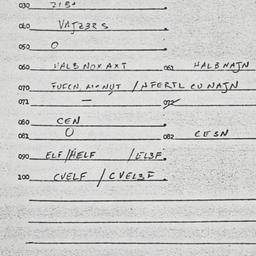 030
040 VAJZERS
050 O
060 HALBNOXAXT 061 HALBNAJN
070 / AFERTL CU NAJN
071 — 072
080 CEN
081 O 082 CESN
090 ELF/HELF /ELBF.
100 CVELF / CVELBF